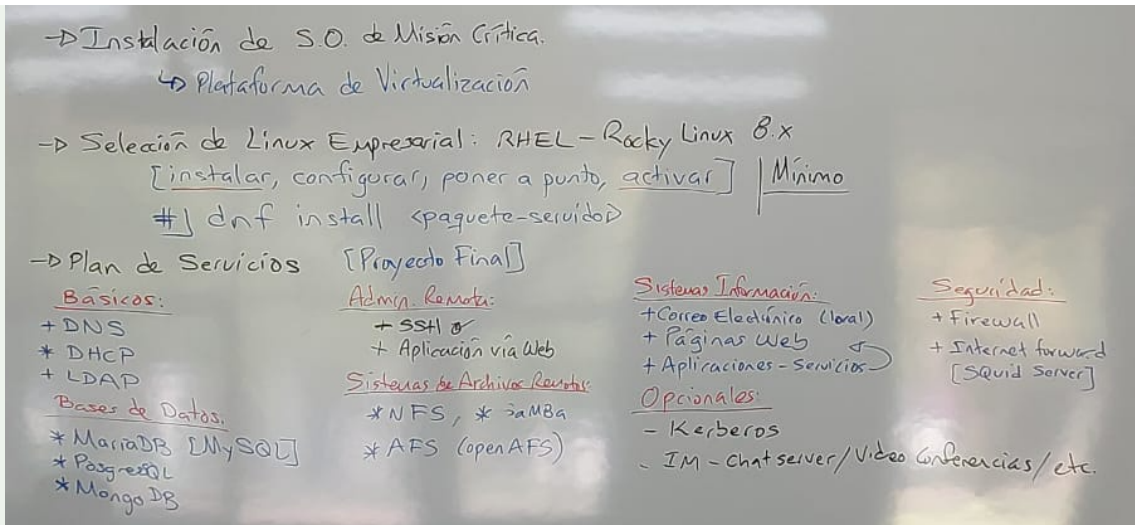 → Instalación de S.O. de Misión Crítica.
↳ Plataforma de Virtualización
→ Selección de Linux Empresarial: RHEL - Rocky Linux 8.x
[instalar, configurar, poner a punto, activar] | Mínimo
#] dnf install <paquete-servidor>
→ Plan de Servicios [Proyecto Final]
Básicos:
+ DNS
* DHCP
+ LDAP
Bases de Datos:
* MariaDB [MySQL]
* PosgreSQL
* MongoDB
Admin. Remota:
+ SSH
+ Aplicación vía Web
Sistemas de Archivos Remotos:
* NFS, * SaMBa
* AFS (openAFS)
Sistemas Información:
+ Correo Electrónico (local)
+ Páginas Web
+ Aplicaciones - Servicios
Opcionales:
- Kerberos
- IM - Chatserver / Video Conferencias / etc.
Seguridad:
+ Firewall
+ Internet forward
[SQuid Server]